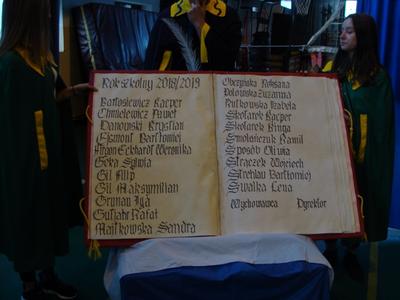 Rok szkolny 2018/2019
Bartosiewicz Kacper
Chmielewicz Paweł
Danowski Krystian
Ejsmont Bartłomiej
Weronika
Góra Sylwia
Gil Filip
Gil Maksymilian
Grynan Iga
Gutjahr Rafał
Majkowska Sandra
Obczyńska Roksana
Połowska Zuzanna
Rutkowska Izabela
Skotarek Kacper
Skotarek Kinga
Smolińczuk Kamil
Sposób Oliwia
Strączek Wojciech
Strehlau Bartłomiej
Swałka Lena
Wychowawca Dyrektor